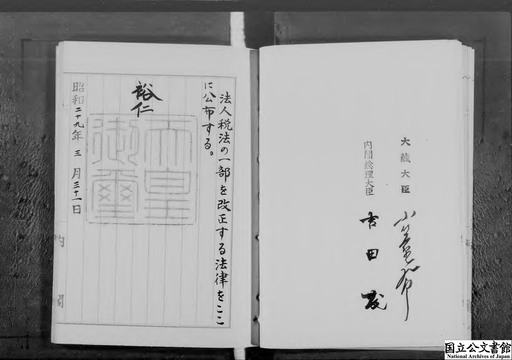 大蔵大臣 小笠原三九郎
内閣総理大臣 吉田茂
法人税法の一部を改正する法律をここ
に公布する。
裕仁
天皇
御璽
昭和二十九年三月三十一日
内閣
国立公文書館
National Archives of Japan